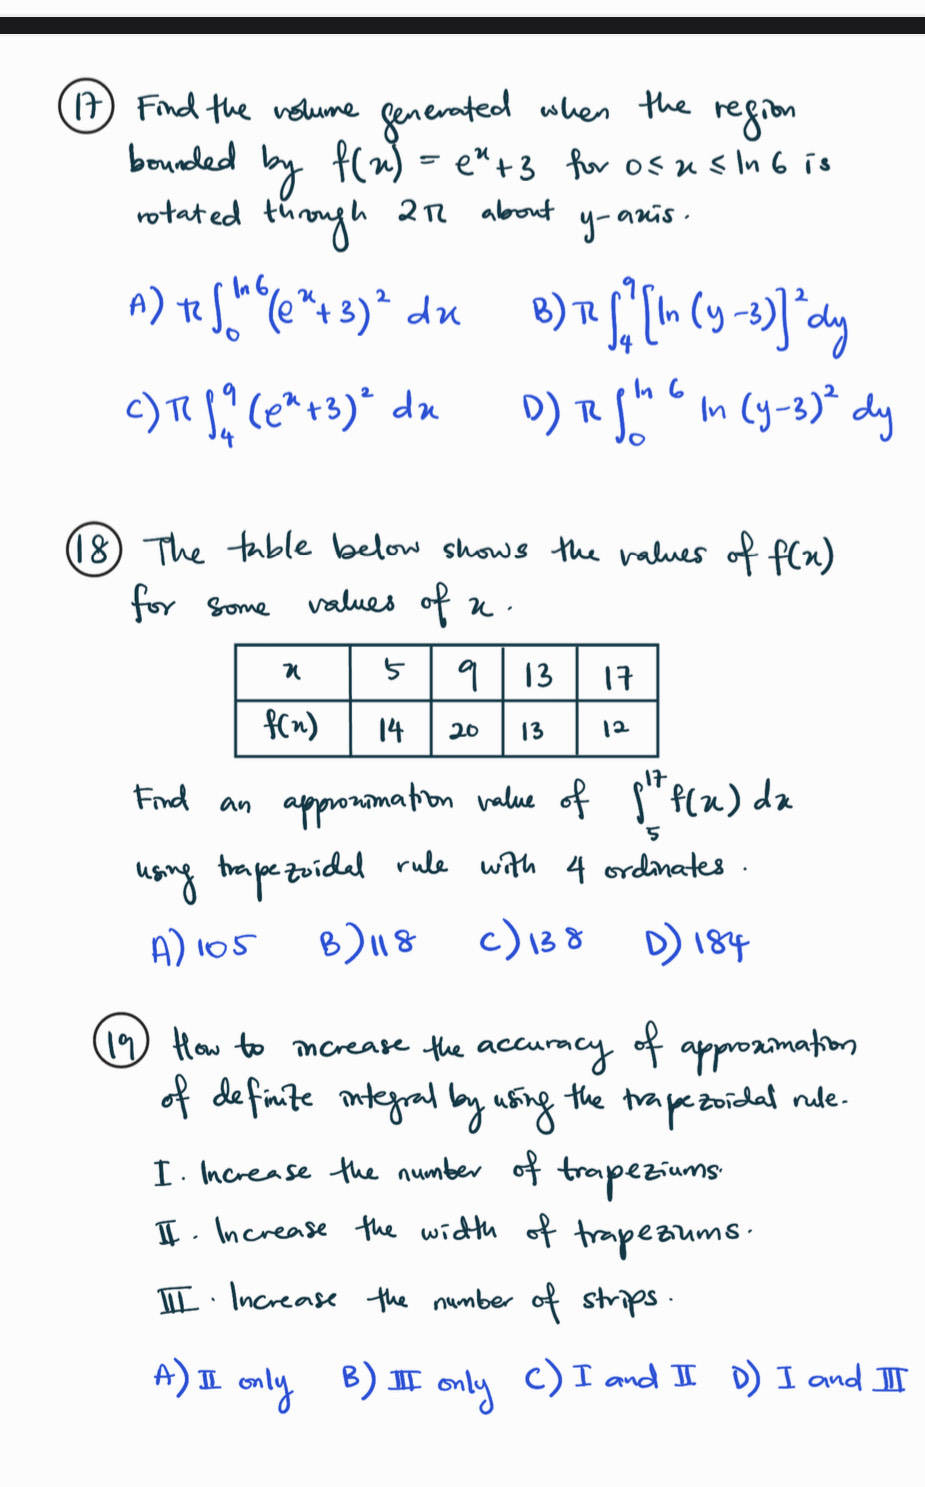 17 Find the volume generated when the region
bounded by f(x) = eˣ + 3 for 0 ≤ x ≤ ln 6 is
rotated through 2π about y-axis.
A) π ∫₀^{ln 6} (eˣ + 3)² dx B) π ∫₄⁹ [ln (y - 3)]² dy
C) π ∫₄⁹ (eˣ + 3)² dx D) π ∫₀^{ln 6} ln (y - 3)² dy
18 The table below shows the values of f(x)
for some values of x.
x 5 9 13 17
f(x) 14 20 13 12
Find an approximation value of ∫₅¹⁷ f(x) dx
using trapezoidal rule with 4 ordinates.
A) 105 B) 118 C) 138 D) 184
19 How to increase the accuracy of approximation
of definite integral by using the trapezoidal rule.
I. Increase the number of trapeziums.
II. Increase the width of trapeziums.
III. Increase the number of strips.
A) II only B) III only C) I and II D) I and III